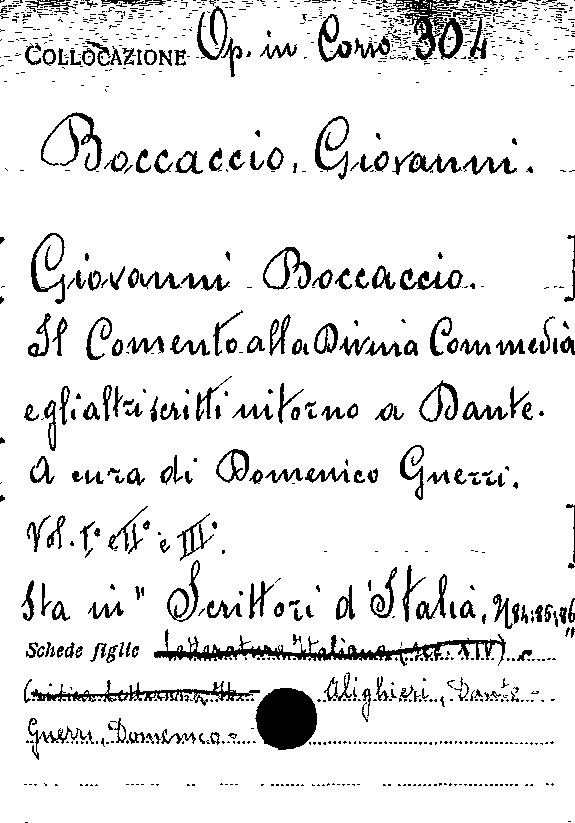 COLLOCAZIONE Op. in Corso 304
Boccaccio, Giovanni.
Giovanni Boccaccio.
Il Comento alla Divina Commedia
e gli altri scritti intorno a Dante.
A cura di Domenico Guerri.
Vol. I° e II° e III°.
Sta in "Scrittori d'Italia, N 84:85;86"
Schede figlie Letteratura Italiana (sec. XIV) -
Critica Letteraria It. - Alighieri, Dante -
Guerri, Domenico -